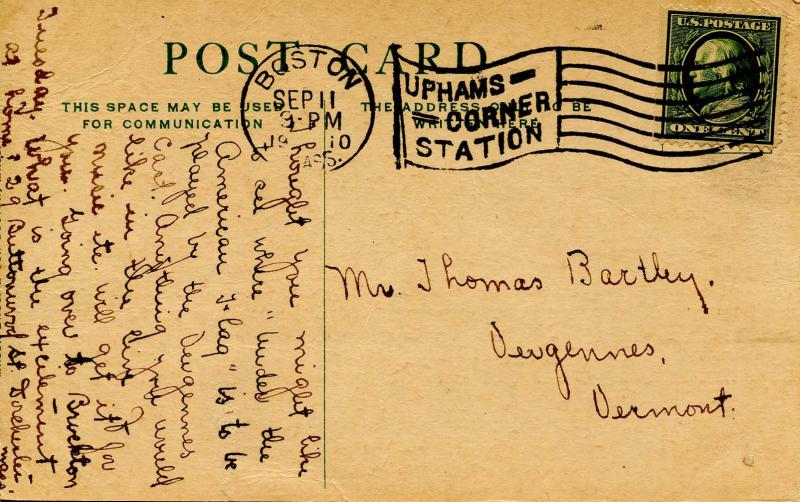 POST CARD
THIS SPACE MAY BE USED
FOR COMMUNICATION
THE ADDRESS O TO BE
WRI HERE
BOSTON
SEP 11
9 - PM
1910
MASS.
UPHAMS
CORNER
STATION
U.S. POSTAGE
ONE CENT
I thought you might like
to see where "Under the
American Flag" is to be
played by the Vergennes
Cast. Anything you would
like in the line
music etc. will get it for
you. Going over to Brockton
Tuesday. What is the excitement
at home? 29 Buttonwood St Dorchester
Mass.
Mr. Thomas Bartley.
Vergennes,
Vermont.